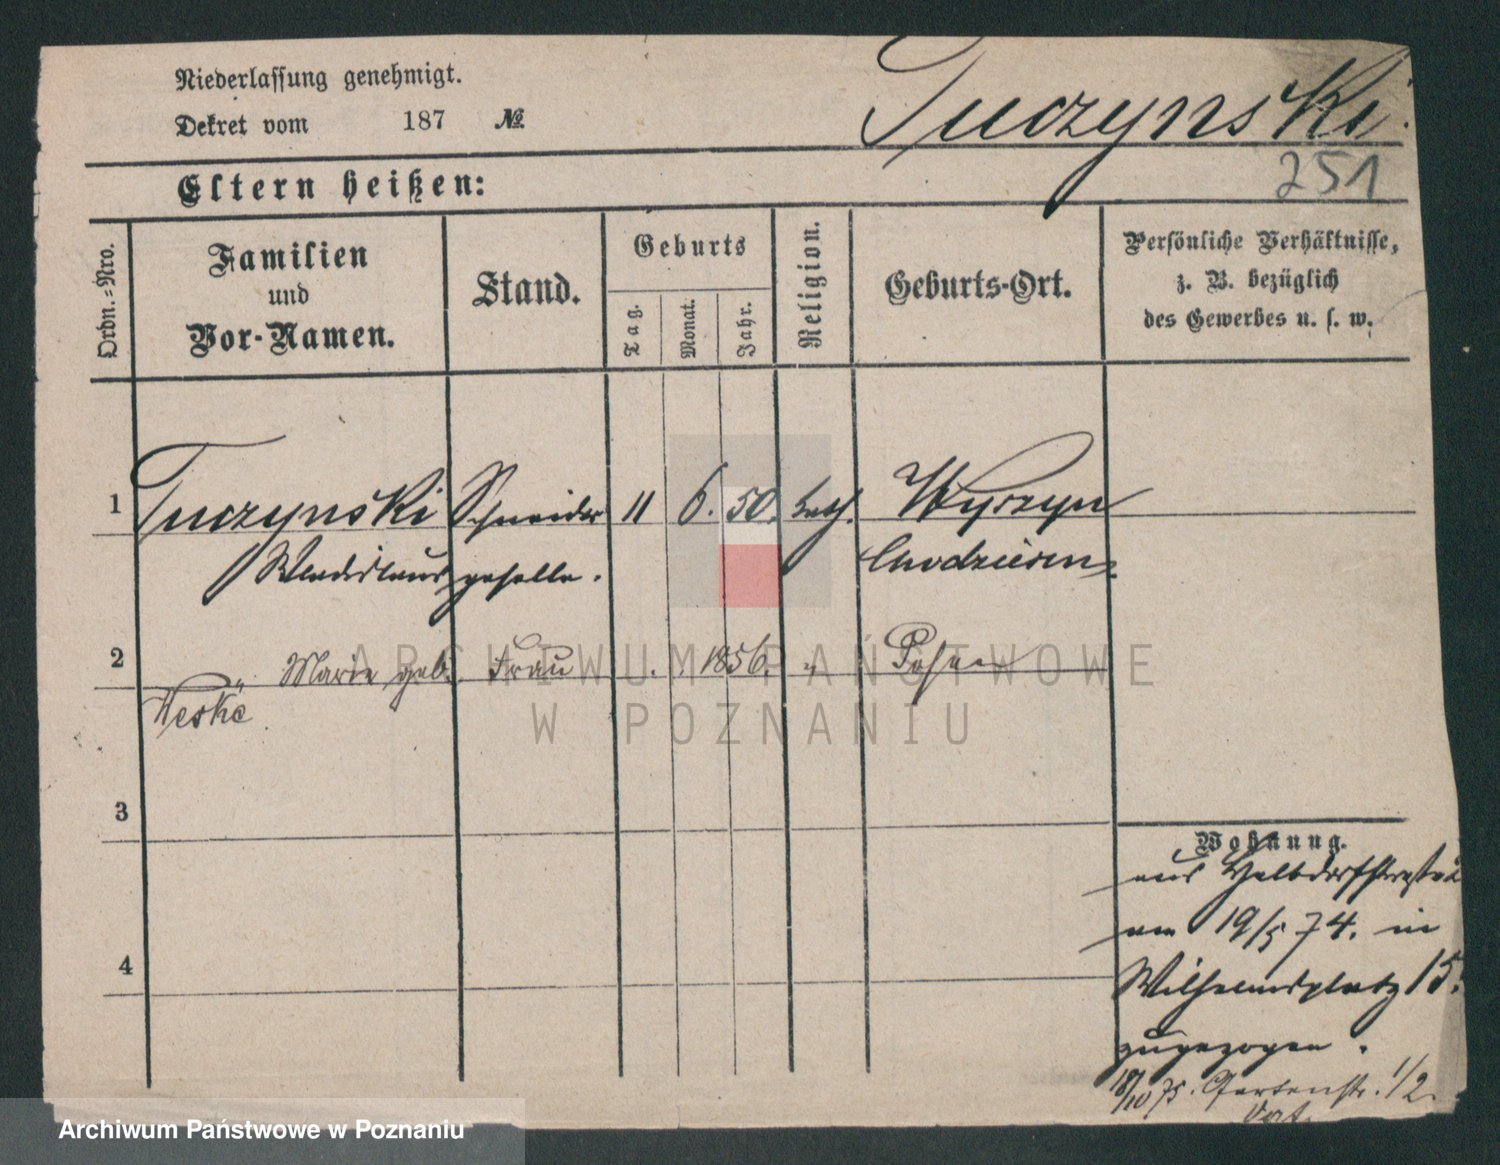 Niederlassung genehmigt.
Dekret vom 187 №
Tuczynski.
251
Eltern heißen:
Ordn.-Nro.
Familien und Vor-Namen.
Stand.
Geburts
Tag.
Monat.
Jahr.
Religion.
Geburts-Ort.
Persönliche Verhältnisse,
z. B. bezüglich
des Gewerbes u. s. w.
1 Tuczynski Schneider 11 6. 50. kath. Wyszyn
Wladislaus geselle. Chodziesen
2 Marie geb. Frau 1856. " Posen
Heske
3
4
Wohnung.
aus Halbdorfstraße
am 19/5 74. in
Wilhelmsplatz 15.
zugezogen.
18/10 75. Gartenstr. 1/2.
ARCHIWUM PAŃSTWOWE
W POZNANIU
Archiwum Państwowe w Poznaniu